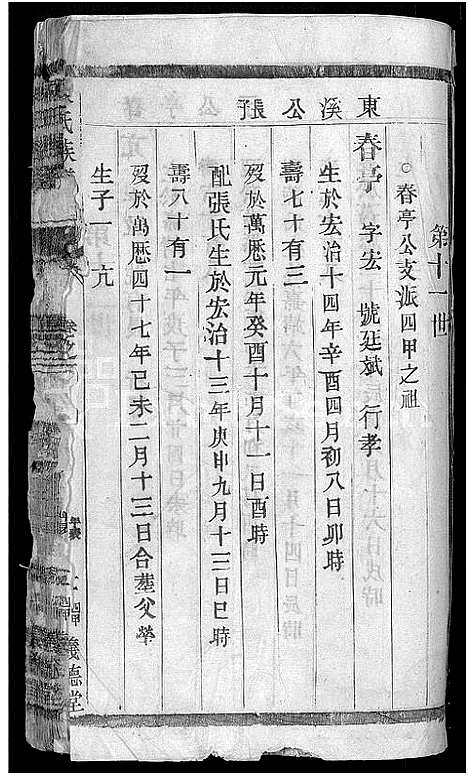 東溪公張子
第十一世
○春亭公支派四甲之祖
春亭　字宏　號廷斌　行孝
生於宏治十四年辛酉四月初八日卯時
壽七十有三
歿於萬歷元年癸酉十月十一日酉時
配張氏生於宏治十三年庚申九月十三日巳時
壽八十有一
歿於萬歷四十七年己未二月十三日合塟父塋
生子一　亢
氏族
年表
義德堂